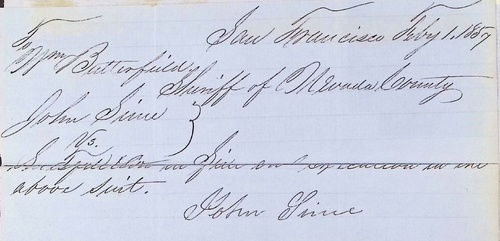 San Francisco Feby 1. 1857
To
Wm Butterfield
Sheriff of Nevada County
John Sime
vs.
in on execution in the
above suit.
John Sime